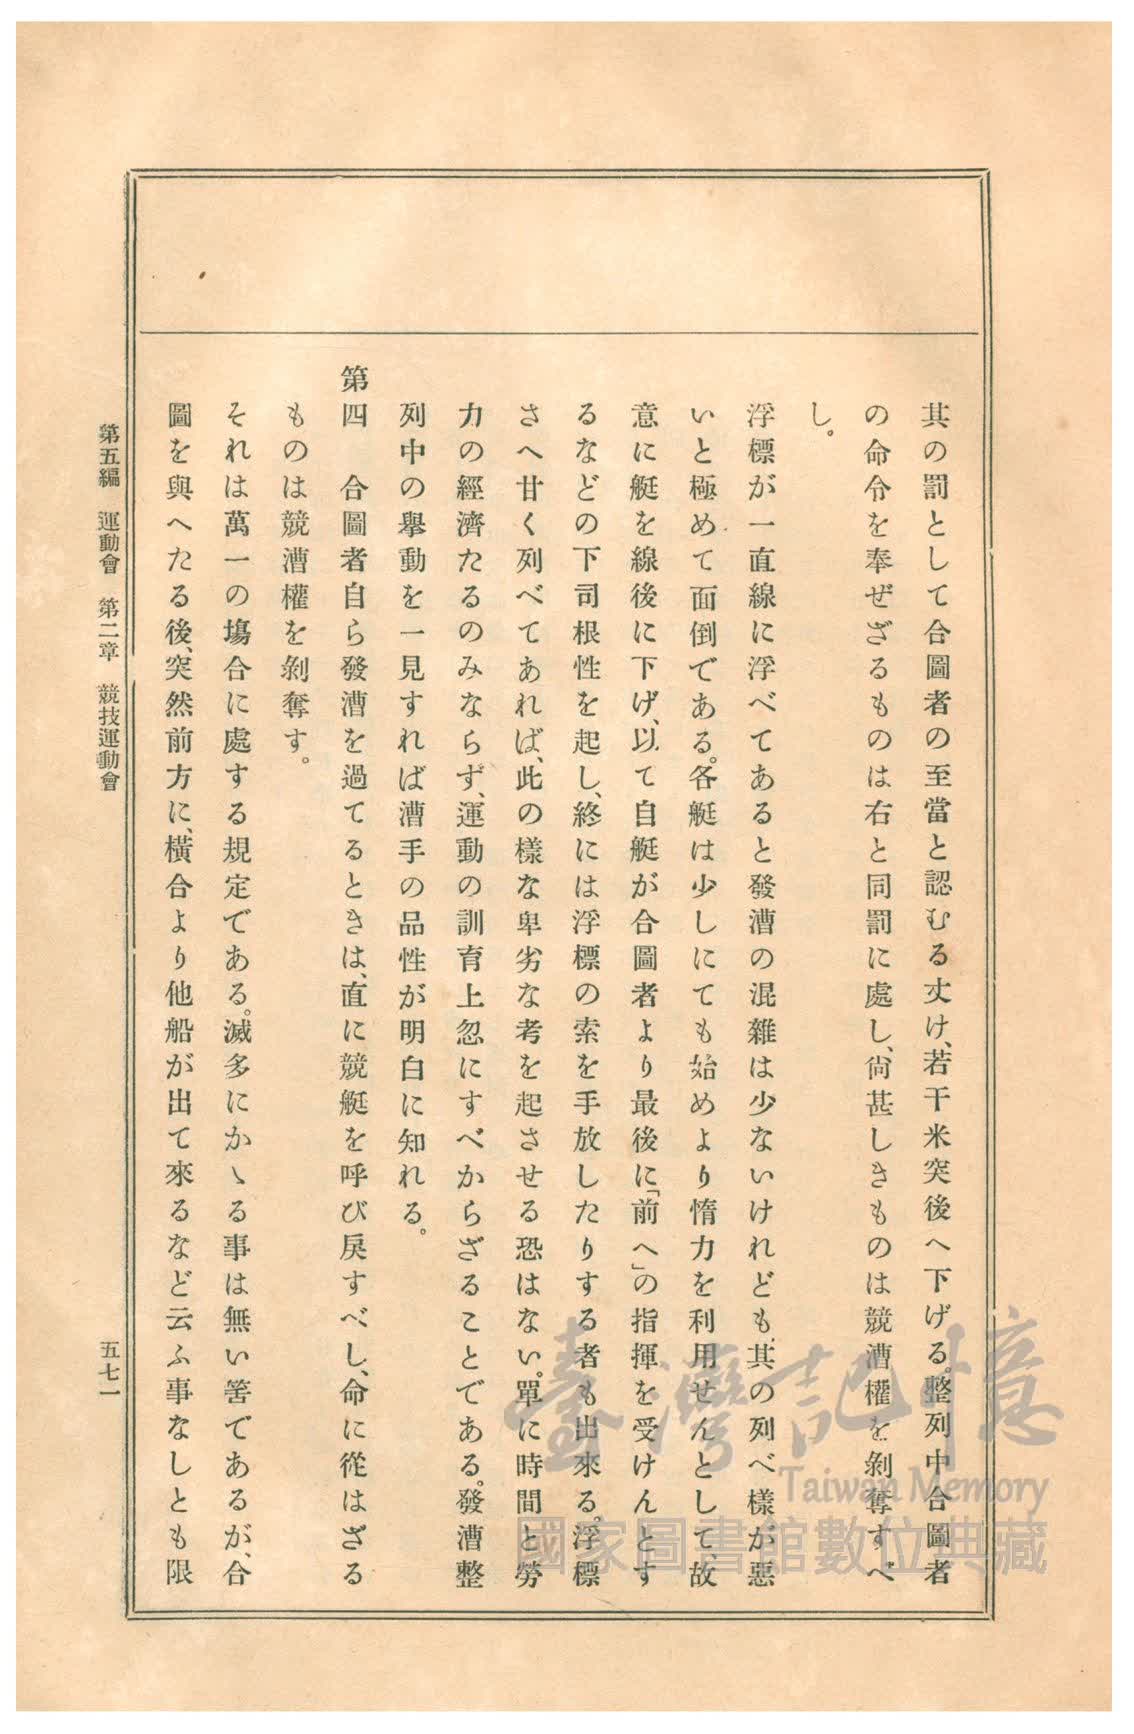 其の罰として合圖者の至當と認むる丈け、若干米突後へ下げる。整列中合圖者
の命令を奉ぜざるものは右と同罰に處し、尙甚しきものは競漕權を剝奪すべ
し。
浮標が一直線に浮べてあると發漕の混雜は少ないけれども、其の列べ樣が惡
いと極めて面倒である。各艇は少しにても始めより惰力を利用せんとして、故
意に艇を線後に下げ、以て自艇が合圖者より最後に「前へ」の指揮を受けんとす
るなどの下司根性を起し、終には浮標の索を手放したりする者も出來る。浮標
さへ甘く列べてあれば、此の樣な卑劣な考を起させる恐はない。單に時間と勞
力の經濟たるのみならず、運動の訓育上忽にすべからざることである。發漕整
列中の擧動を一見すれば漕手の品性が明白に知れる。
第四　合圖者自ら發漕を過てるときは、直に競艇を呼び戾すべし、命に從はざる
ものは競漕權を剝奪す。
それは萬一の塲合に處する規定である。滅多にかゝる事は無い筈であるが、合
圖を與へたる後、突然前方に、橫合より他船が出て來るなど云ふ事なしとも限
第五編　運動會　第二章　競技運動會
五七一
臺灣記憶
Taiwan Memory
國家圖書館數位典藏